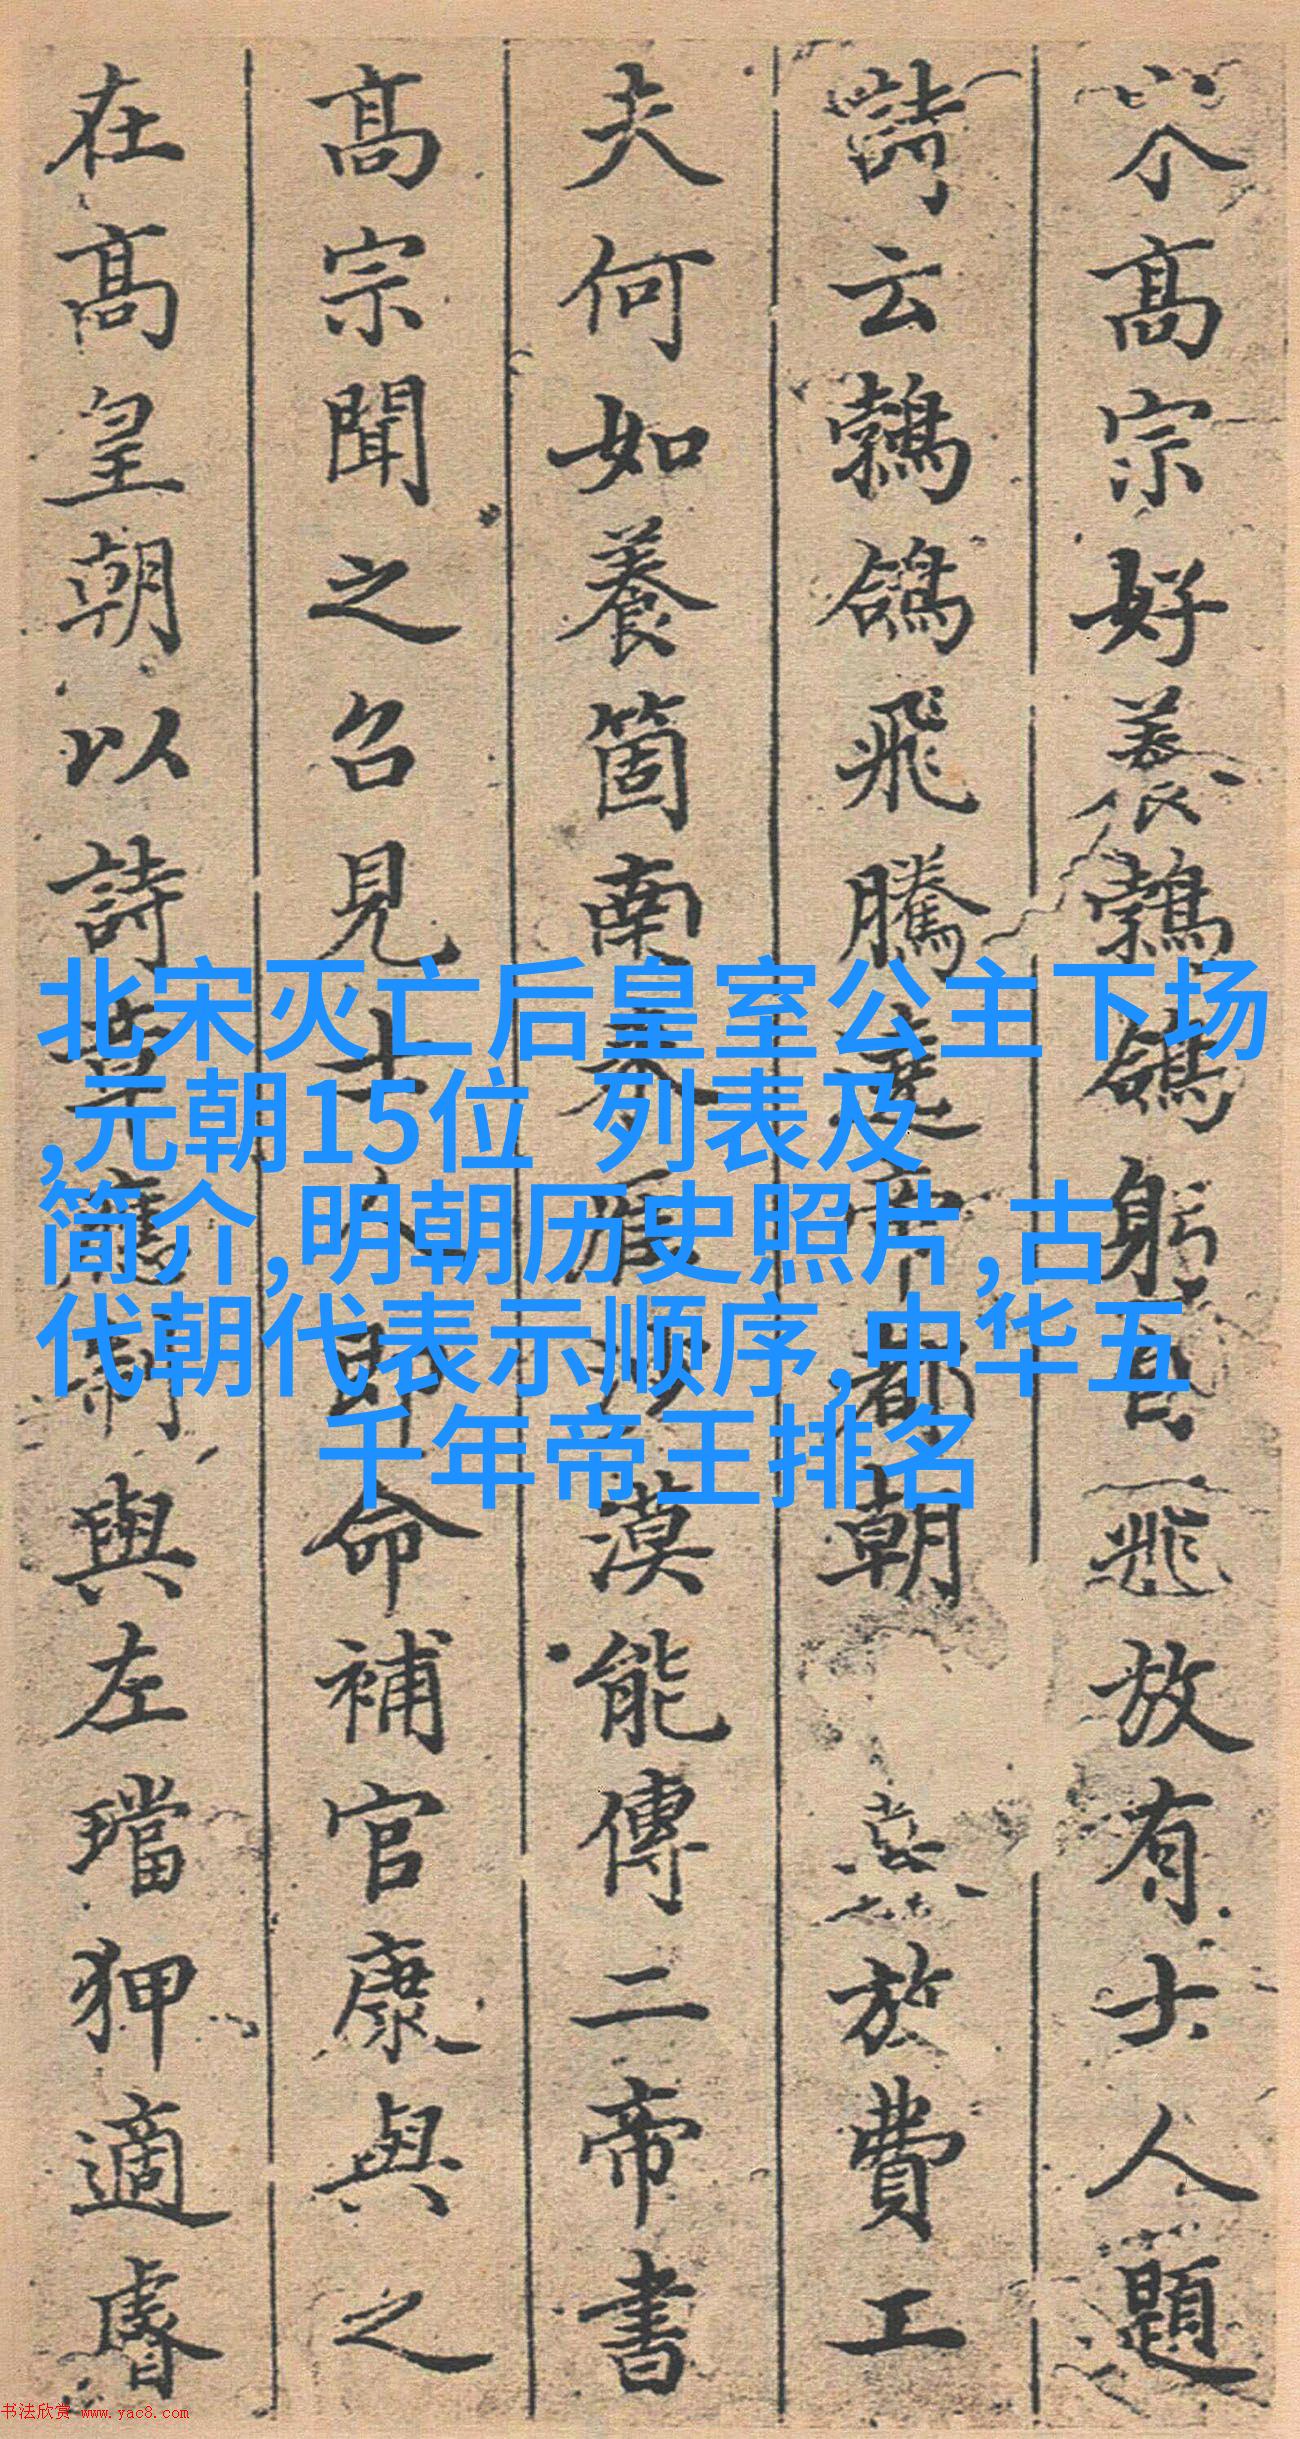 宋高宗好養鵓鴿躬自飛放有士人題
詩云鵓鴿飛騰遶帝都朝暮放費工
夫何如養箇南來鴈沙漠能傳二帝書
高宗聞之召見士人即命補官康與之
在高皇朝以詩章應制與左璫狎適睿
北宋灭亡后皇室公主下场
,元朝15位 列表及
简介,明朝历史照片,古
代朝代表示顺序,中华五
千年帝王排名
书法欣赏 www.yac8.com